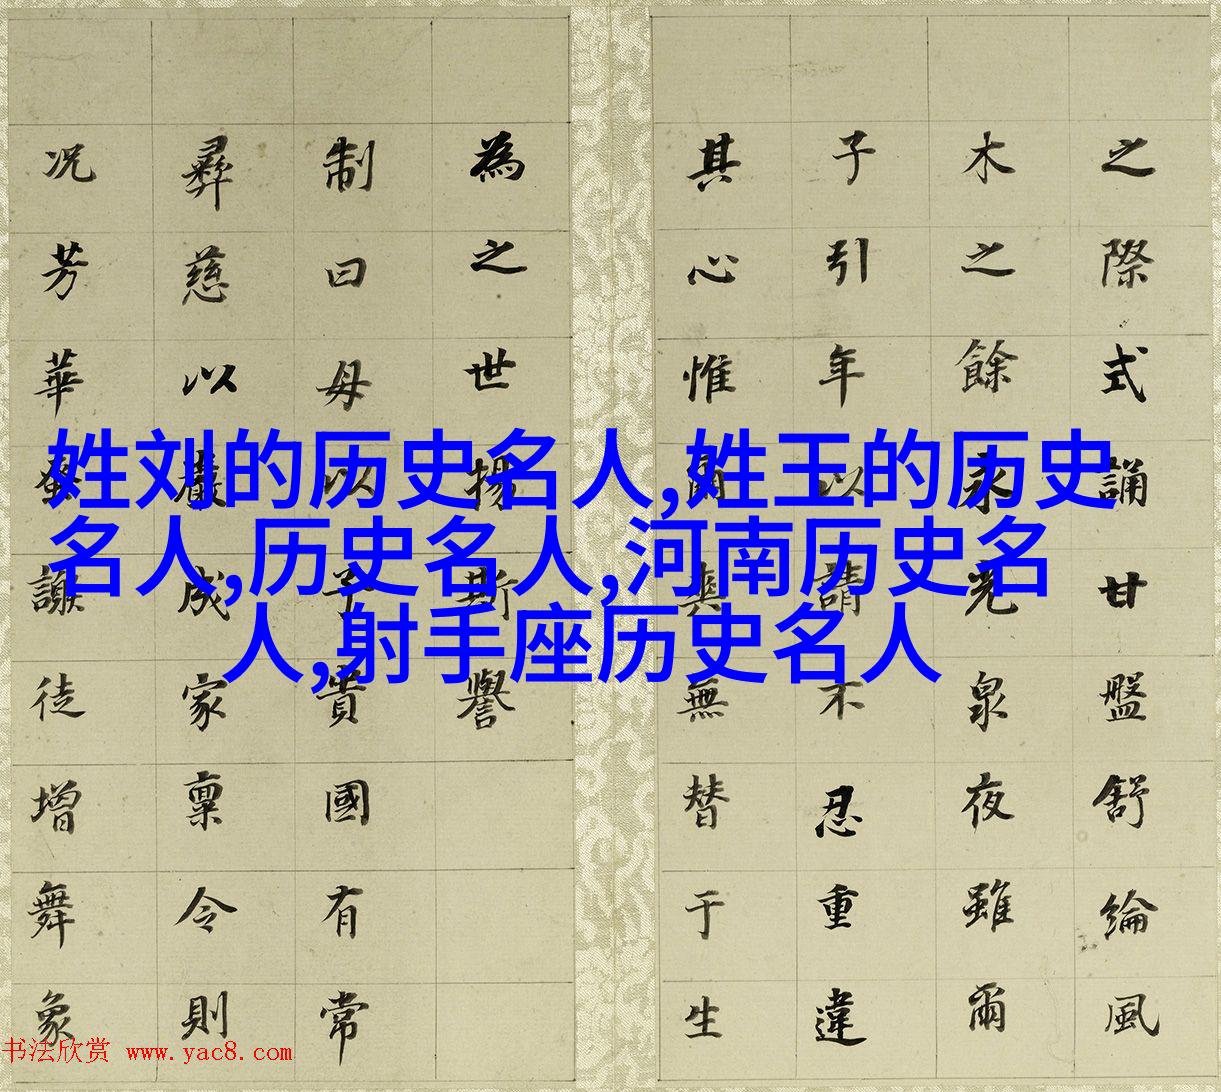 姓刘的历史名人,姓王的历史
名人,历史名人,河南历史名
人,射手座历史名人
之際式誦甘盤舒綸風
木之餘永光泉夜雖爾
子引年以請不忍重違
其心惟爾奭無替于生
為之世揚斯譽
制曰母以子貴國有常
彞慈以嚴成家稟令則
况芳華蚤謝徒增舞象
书法欣赏 www.yac8.com